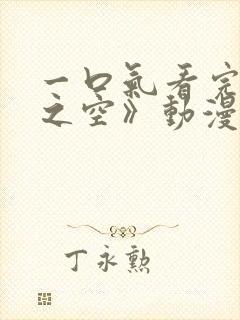 一口氣看完
之空》動漫
丁永勲